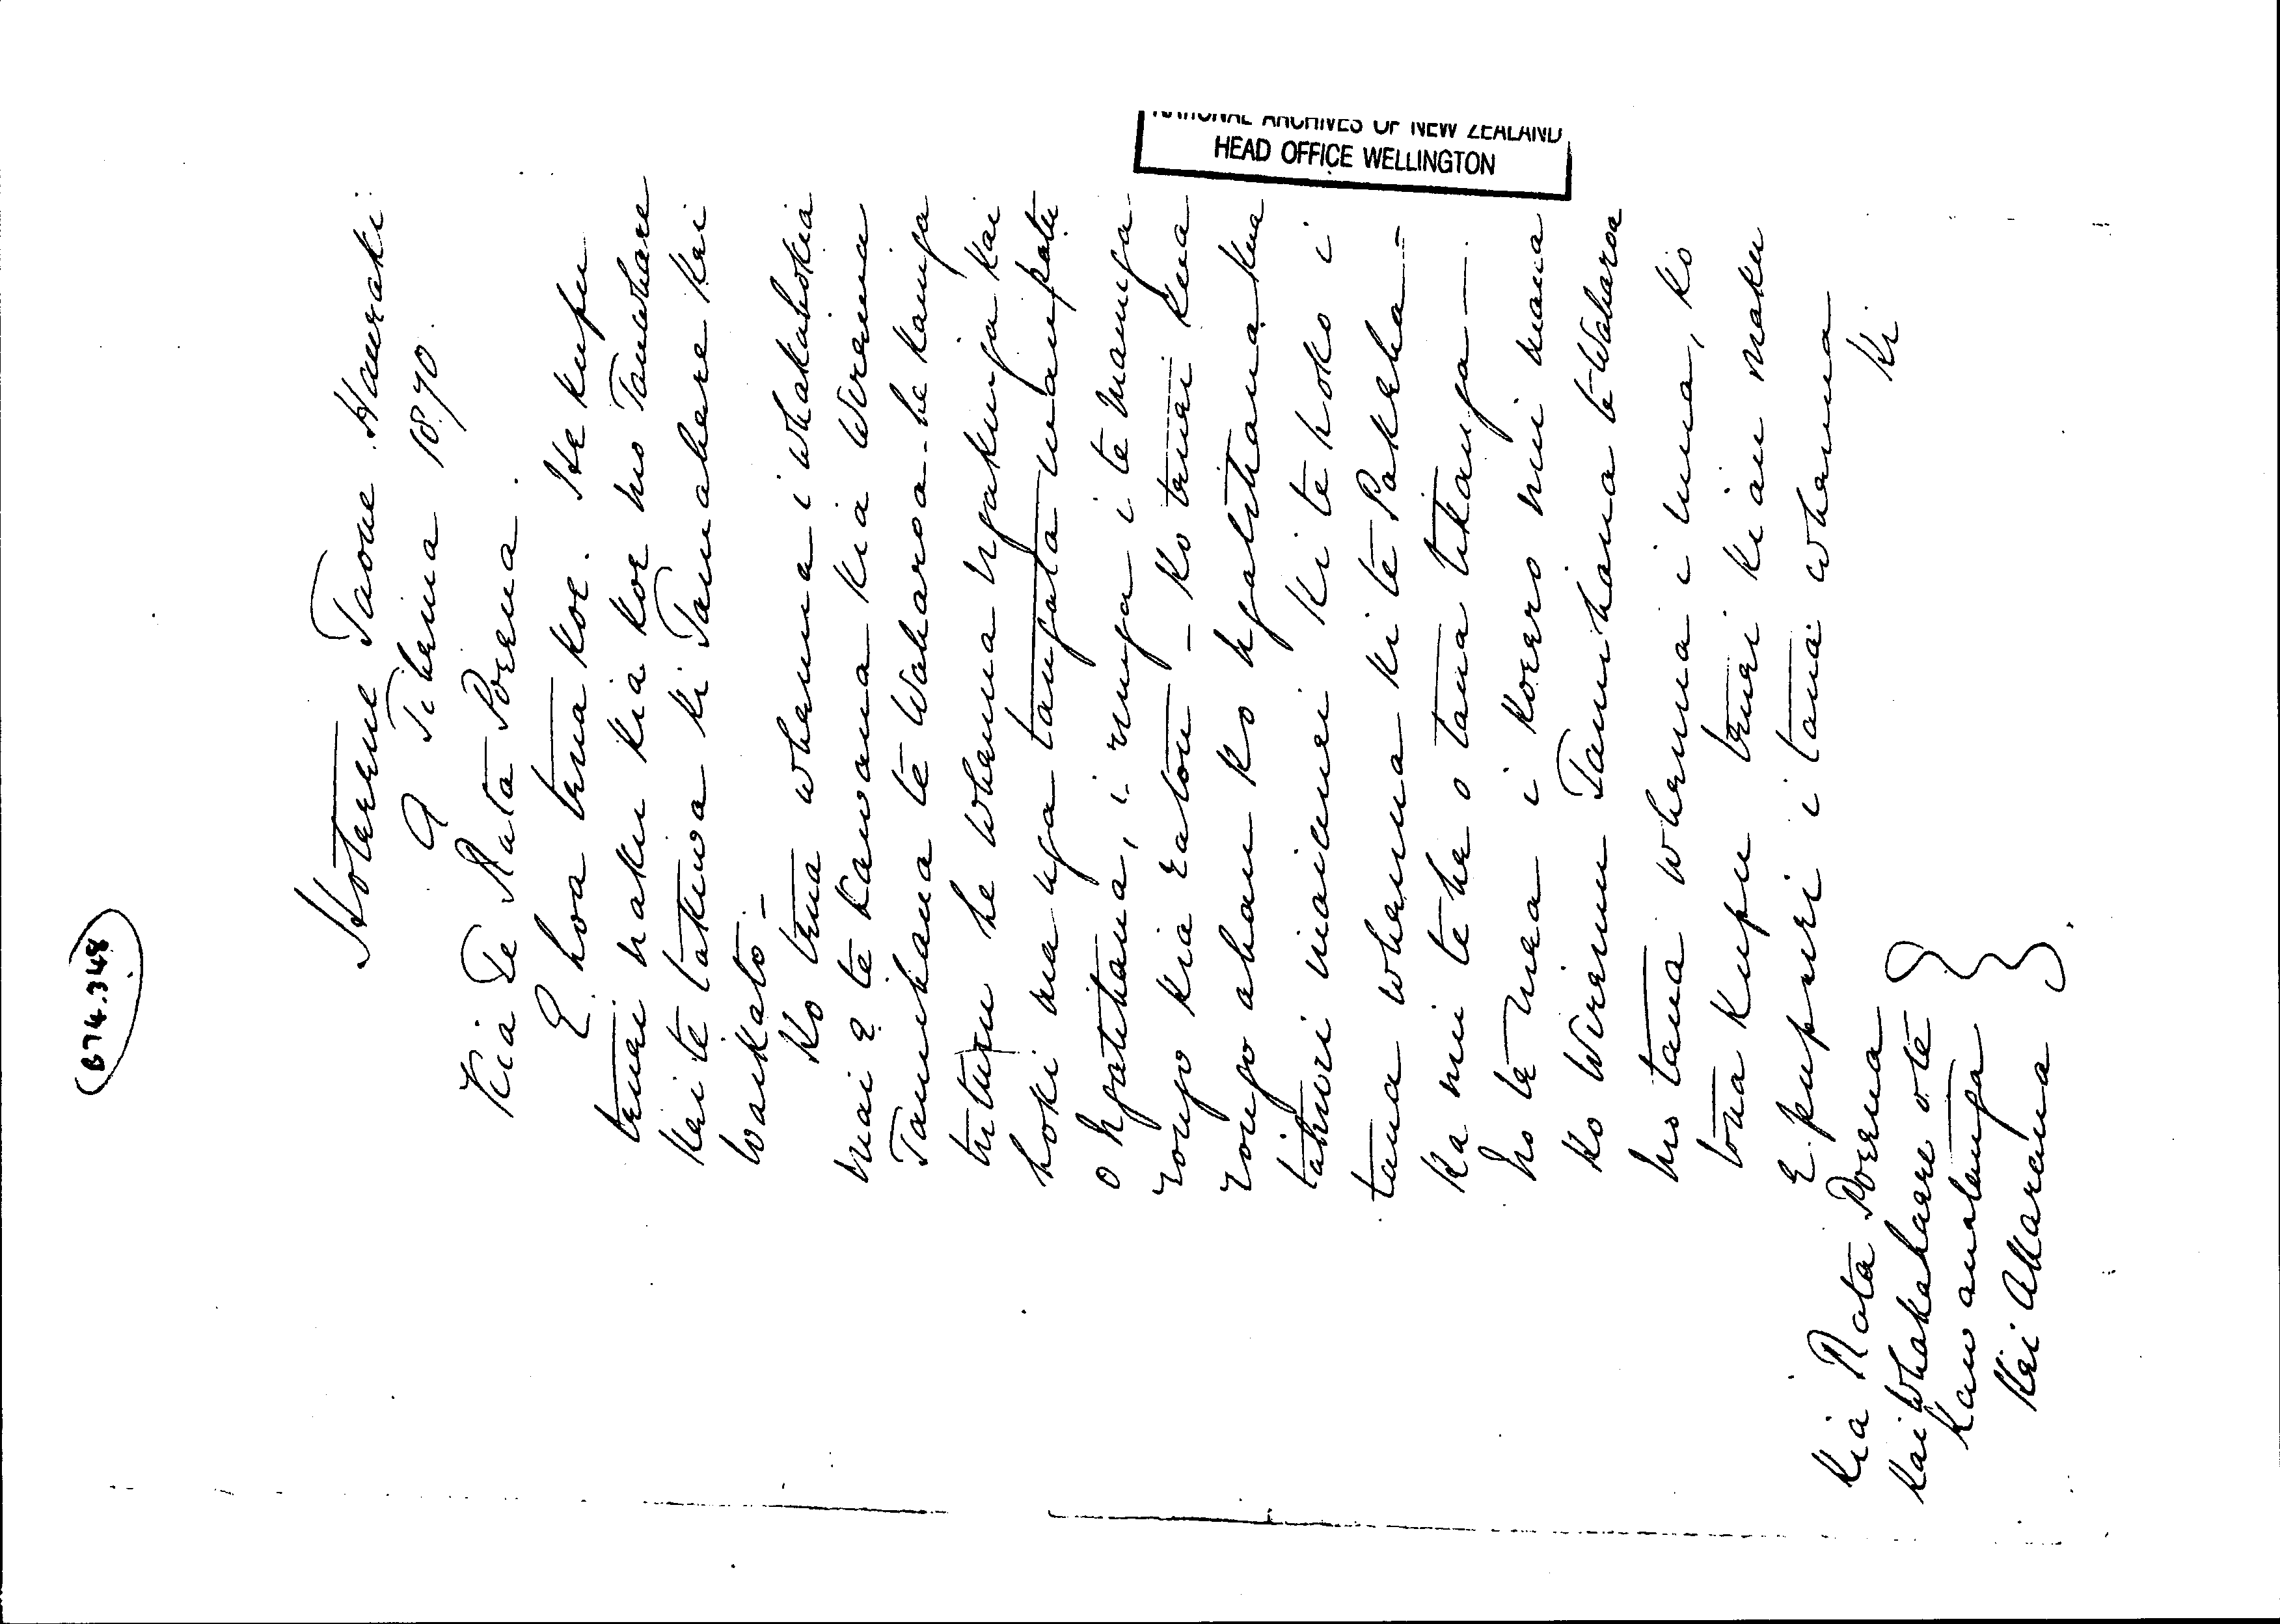 B74.348
NATIONAL ARCHIVES OF NEW ZEALAND
HEAD OFFICE WELLINGTON
Hotereni Taone Hauraki
9 Tihema 1870.
Kia Te Mata Porena.
E hoa tena koe. He kupu
tenei naku kia koe mo Tauwhare
kei te takiwa ki Tamahere kei
Waikato –
Ko tena whenua i whakahokia
mai e te kawana kia Wiremu
Tamihana te Waharoa – he kainga
tuturu he whenua ngakinga kai
hoki na nga tangata
o Ngatihaua, i runga i te maunga
rongo kia ratou – Ko tenei kua
rongo ahau ko Ngatihaua kua
tahuri inaianei ki te hoko i
taua whenua ki te Pakeha –
Ka nui te he o taua tikanga –
no te mea i korero nui mana
ko Wiremu Tamihana te Waharoa
mo taua whenua i mua, ko
tona kupu tenei ki au maku
e pupuri i taua whenua
ki
Kia Mata Porena
Kaiwhakahaere o te
Kawanatanga
Kei Akarana